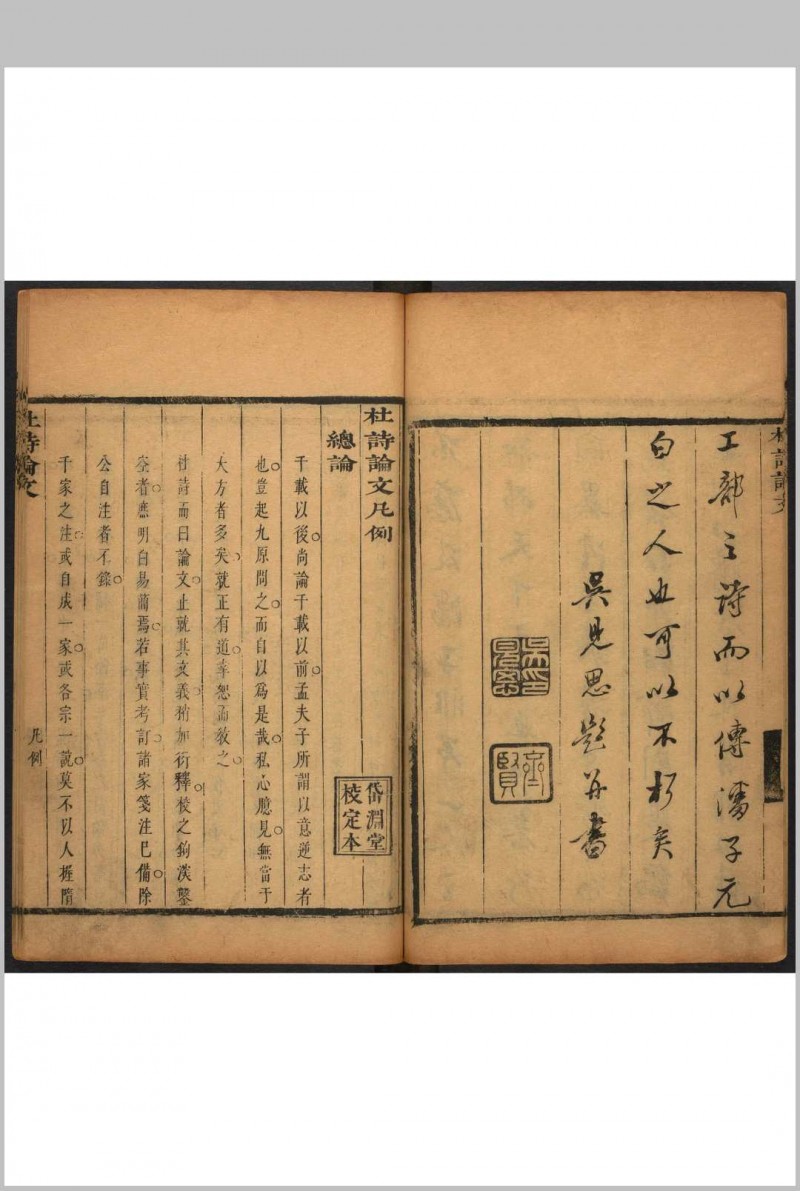 杜詩論文
工部之詩而以傳潘子元
白之人也可以不朽矣
吳見思題并書
吳印見思
齊賢
杜詩論文凡例
岱淵堂
校定本
總論
千載以後尚論千載以前孟夫子所謂以意逆志者
也豈起九原問之而自以為是哉私心臆見無當于
大方者多矣就正有道幸恕而教之
杜詩而曰論文止就其文義稍加衍釋較之鉤深鑿
空者應明白易簡焉若事實考訂諸家箋注已備除
公自注者不錄
千家之注或自成一家或各宗一說莫不以人握隋
杜詩論文
凡例